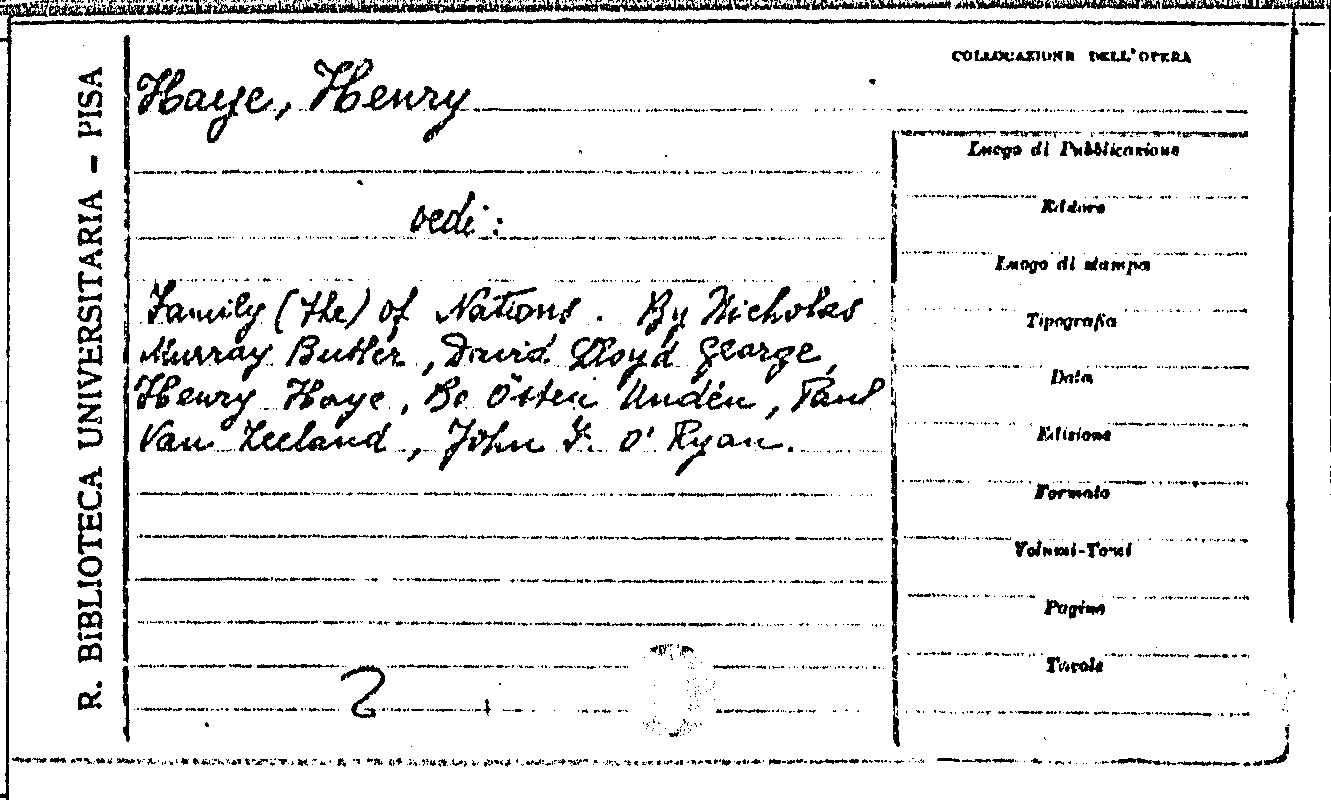 R. BIBLIOTECA UNIVERSITARIA – PISA
COLLOCAZIONE DELL'OPERA
Haye, Henry
vedi:
Family (the) of Nations. By Nicholas
Murray Butler, David Lloyd George,
Henry Haye, Bo Östen Undén, Paul
Van Zeeland, John F. O'Ryan.
2
Luogo di Pubblicazione
Editore
Luogo di stampa
Tipografia
Data
Edizione
Formato
Volumi-Tomi
Pagine
Tavole